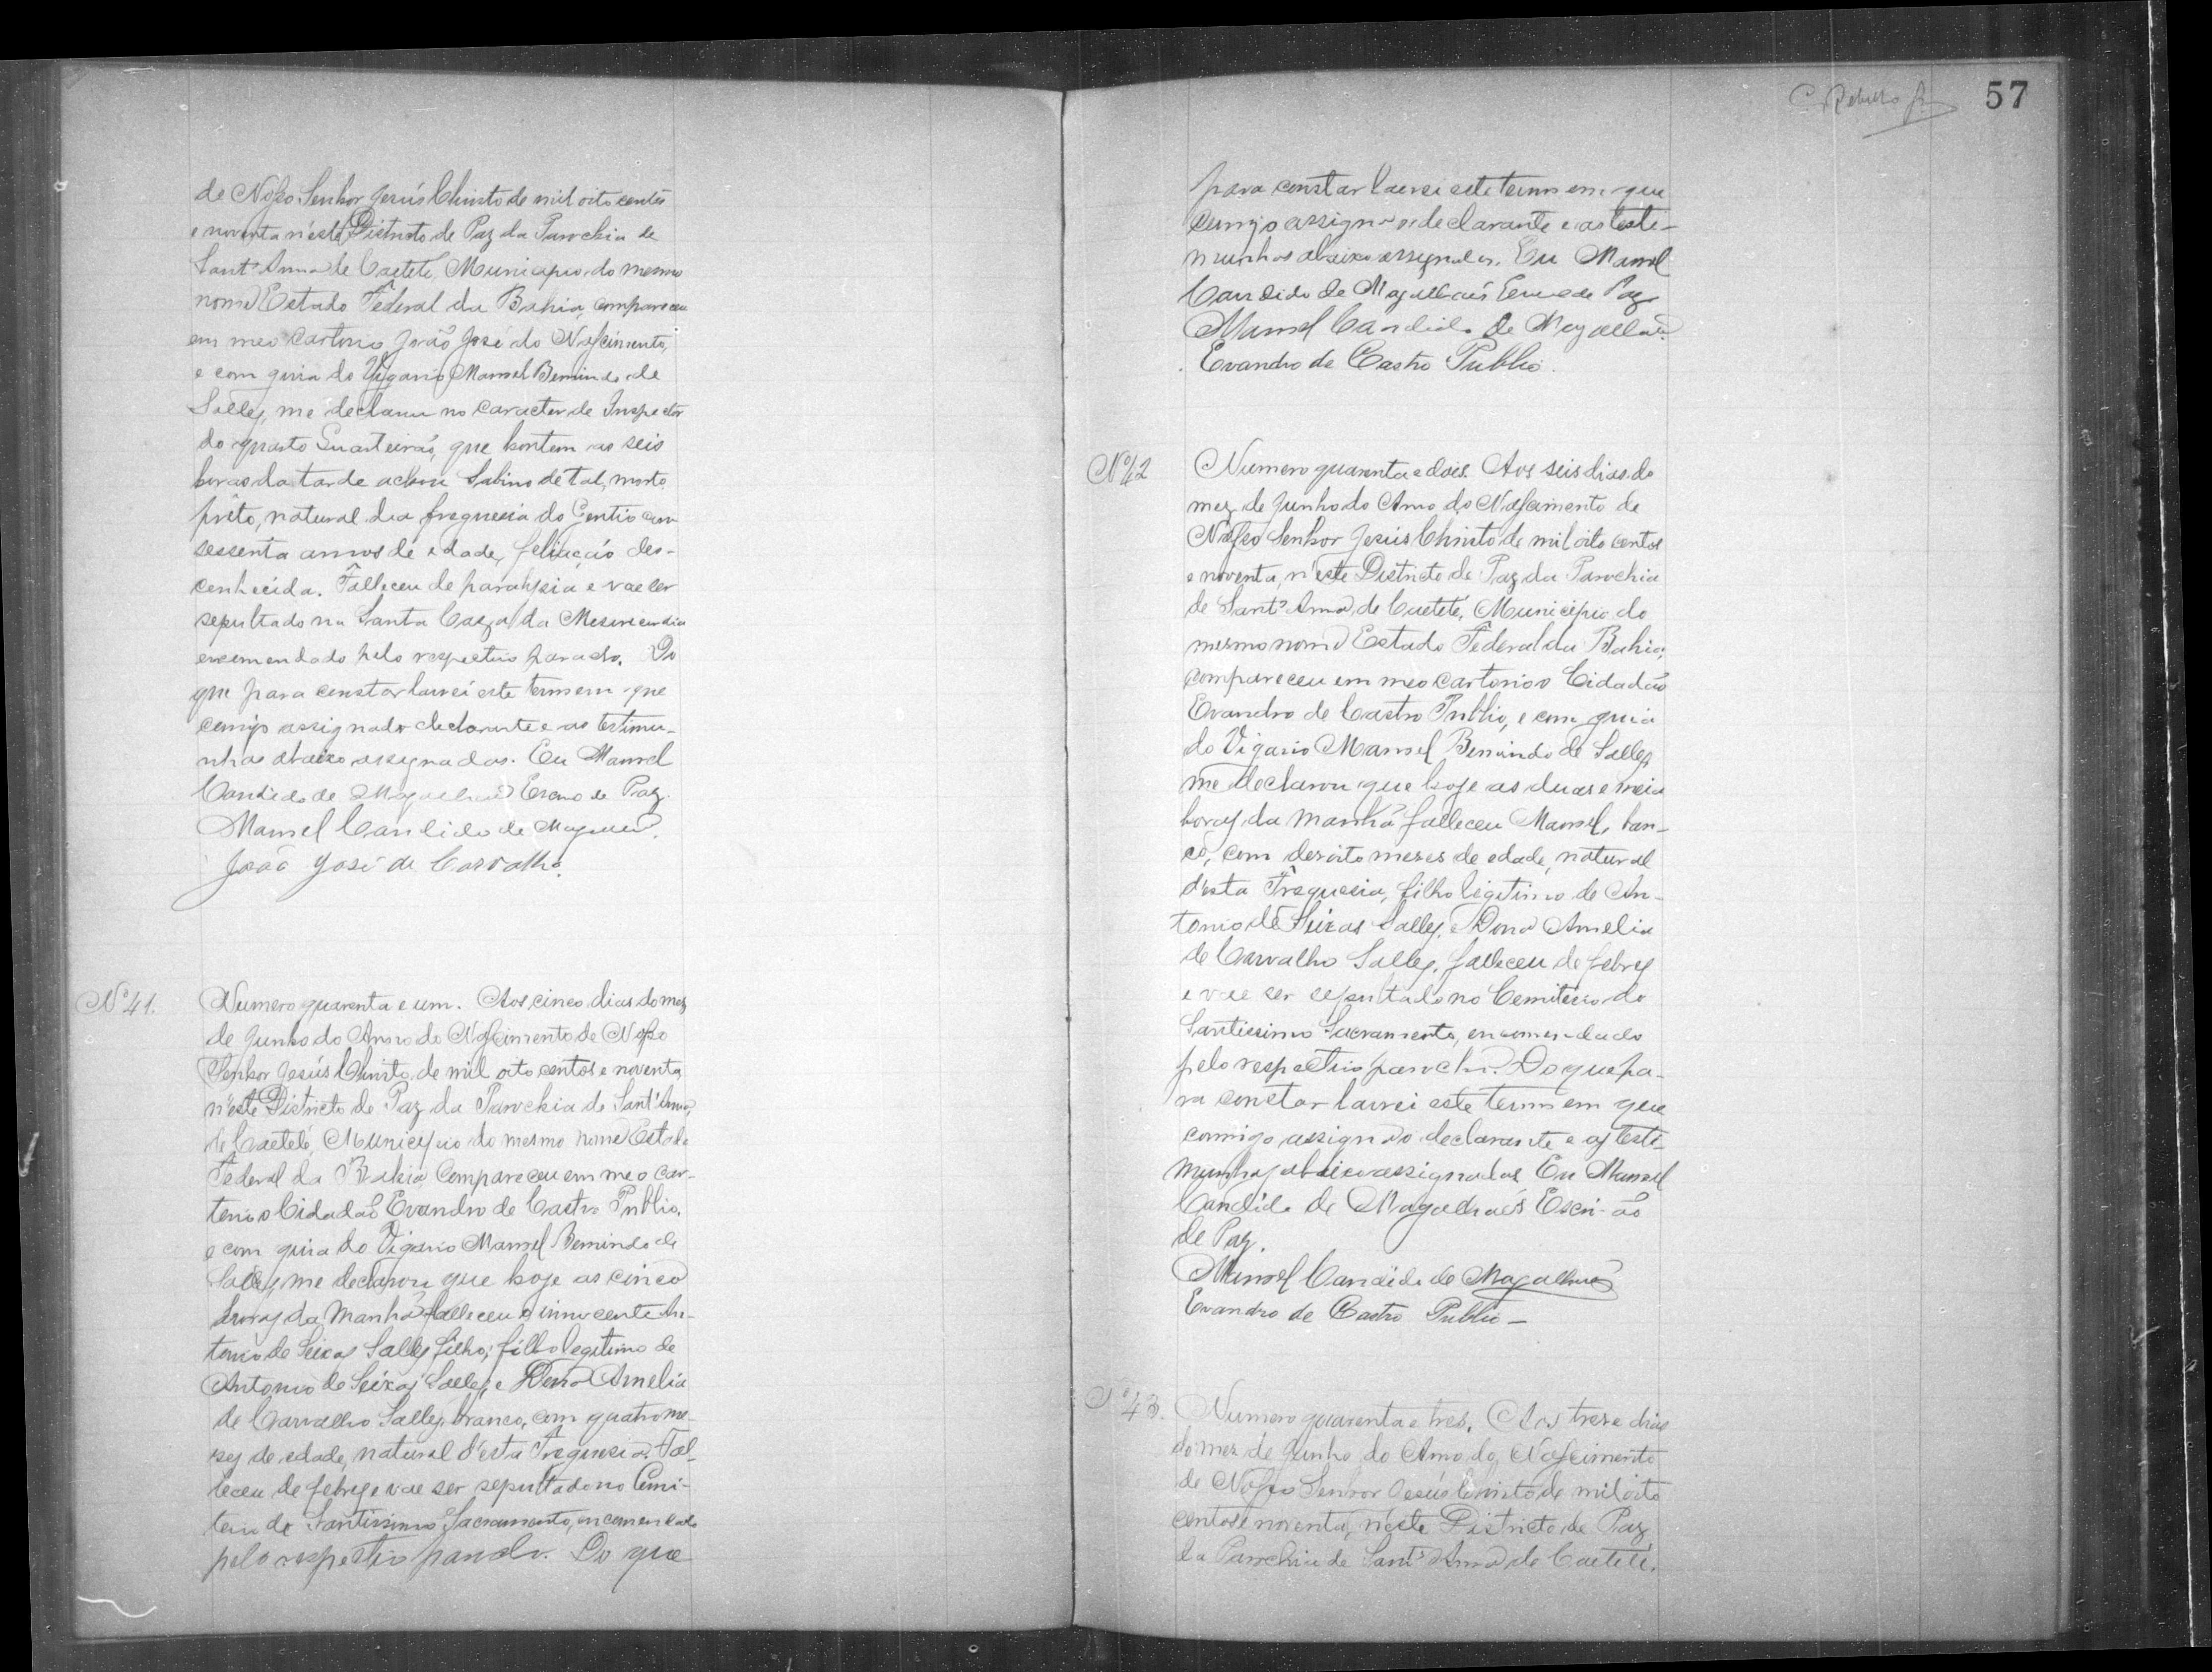 de Nosso Senhor Jesús Christo de mil oito centos
e noventa n'este Districto de Paz da Parochia de
Sant'Anna de Caeteté, Municipio do mesmo
nome Estado Federal da Bahia, compareceu
em meo cartorio João José do Nascimento,
e com guia do Vigario Manoel Benvindo de
Salles, me declarou no caracter de Inspector
do quarto Quarteirão, que hontem as seis
horas da tarde achou Sabino de tal, morto
prêto, natural da freguesia do Gentio com
sessenta annos de edade, feliação des-
conhecida. Falleceu de paralysia e vae ser
sepultado na Santa Caza da Mesiricordia
encomendado pelo respectivo parocho. Do
que para constar lavrei este termo em que
comigo assigna o declarante e as testimu-
nhas abaixo assignadas. Eu Manoel
Candido de Magalhães Escrivão de Paz.
Manoel Candido de Magalhães.
João José de Carvalho.
Nº 41.
Numero quarenta e um. Aos cinco dias do mez
de Junho do Anno do Nascimento de Nosso
Senhor Jesús Christo de mil oito centos e noventa,
n'este Districto de Paz da Parochia de Sant'Anna,
de Caeteté, Municipio do mesmo nome Estado
Federal da Bahia, compareceu em meo car-
torio o Cidadão Evandro de Castro Publio,
e com guia do Vigario Manoel Benvindo de
Salles, me declarou que hoje as cinco
horas da manhã falleceu o innocente An-
tonio de Seixas Salles filho, filho legitimo de
Antonio de Seixas Salles, e Dona Amelia
de Carvalho Salles, branco, com quatro me-
zes de edade, natural d'esta Freguesia. Fal-
leceu de febres e vae ser sepultado no Cemi-
terio do Santissimo Sacramento, encomendado
pelo respectivo parocho. Do que
57
para constar lavrei este termo em que
comigo assigna o declarante e as teste-
munhas abaixo assignadas. Eu Manoel
Candido de Magalhães Escrivão de Paz
Manoel Candido de Magalhães.
Evandro de Castro Publio.
Nº 42
Numero quarenta e dois. Aos seis dias do
mez de Junho do Anno do Nascimento de
Nosso Senhor Jesús Christo de mil oito centos
e noventa, n'este Districto de Paz da Parochia
de Sant'Anna de Caeteté, Municipio do
mesmo nome Estado Federal da Bahia,
compareceu em meo cartorio o Cidadão
Evandro de Castro Publio, e com guia
do Vigario Manoel Benvindo de Salles,
me declarou que hoje as duas e meia
horas da manhã falleceu Manoel, bran-
co, com desoito mezes de edade, natural
d'esta Freguesia, filho legitimo de An-
tonio de Seixas Salles, e Dona Amelia
de Carvalho Salles, falleceu de febres
e vae ser sepultado no Cemiterio do
Santissimo Sacramento, encomendado
pelo respectivo parocho. Do que pa-
ra constar lavrei este termo em que
commigo assigna o declarante e as teste-
munhas abaixo assignadas Eu Manoel
Candido de Magalhães Escrivão
de Paz.
Manoel Candido de Magalhães
Evandro de Castro Publio –
Nº 43.
Numero quarenta e tres. Aos treze dias
do mez de Junho do Anno do Nascimento
de Nosso Senhor Jesús Christo de mil oito
centos e noventa, n'este Districto de Paz
da Parochia de Sant'Anna de Caeteté.